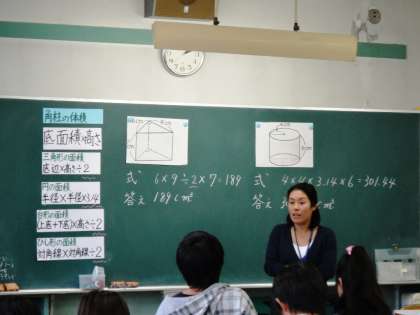 角柱の体積
底面積×高さ
三角形の面積
底辺×高さ÷2
円の面積
半径×半径×3.14
台形の面積
(上底+下底)×高さ÷2
ひし形の面積
対角線×対角線÷2
式 6×9÷2×7=189
答え 189cm³
式 4×4×3.14×6=301.44
答え